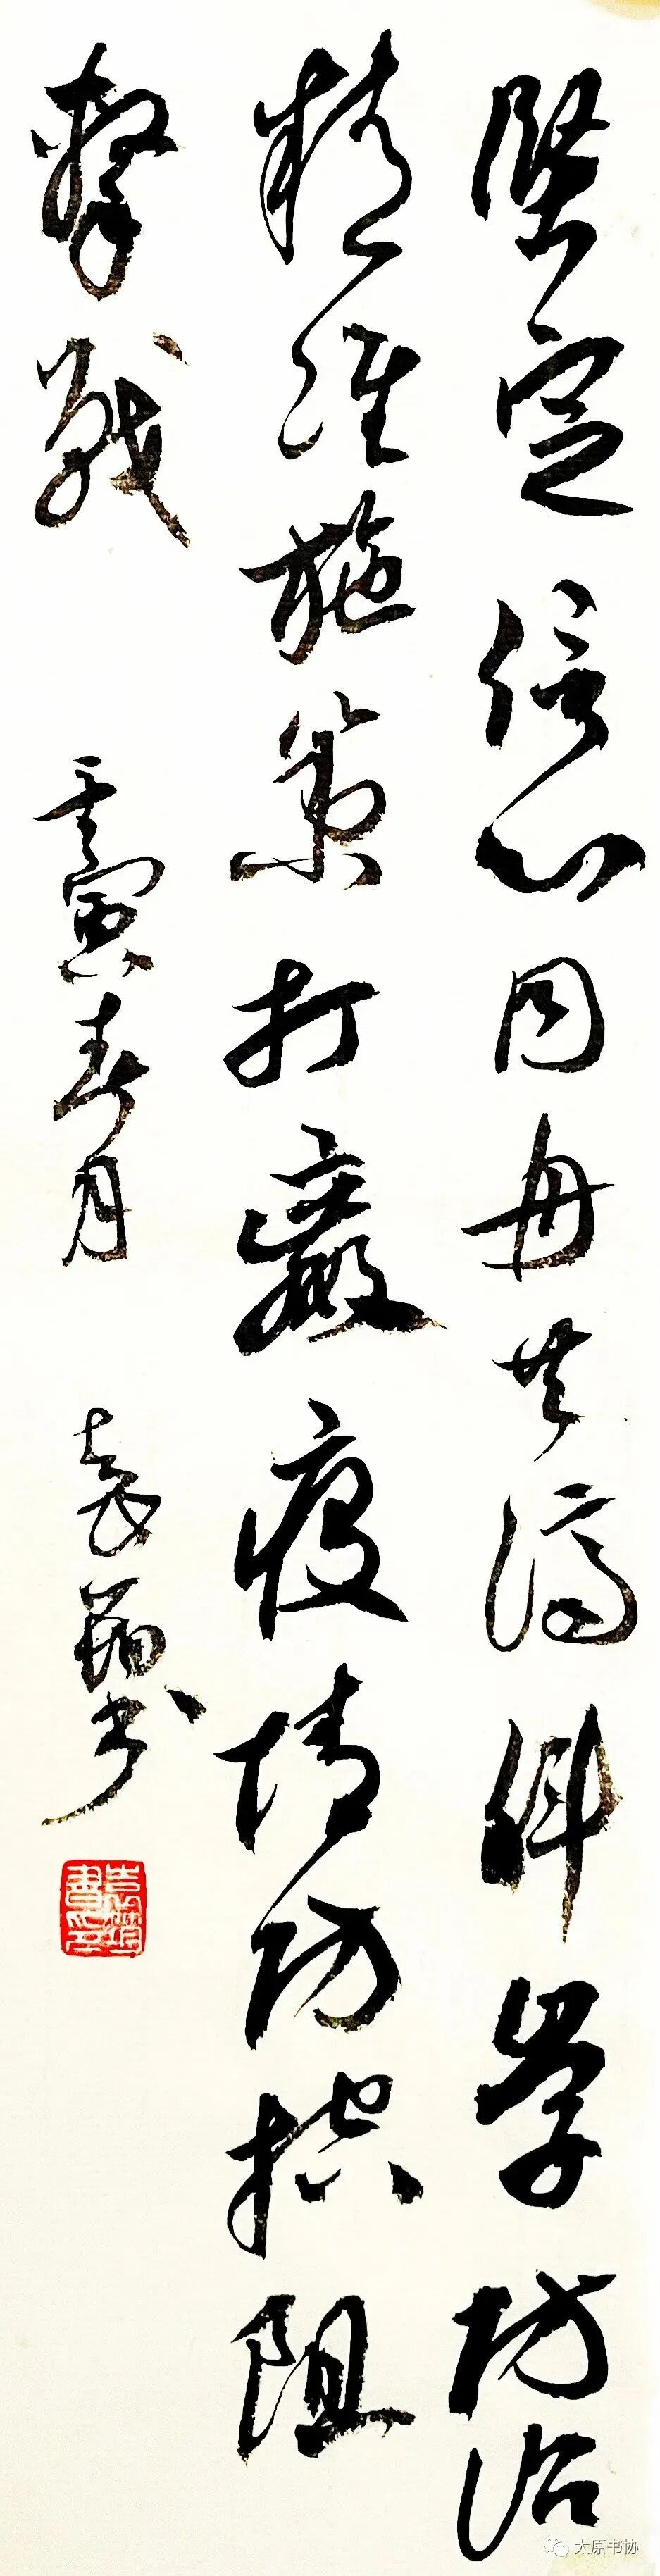 坚定信心同舟共济科学防治
精准施策打赢疫情防控阻
击战
壬寅春月
太原书协